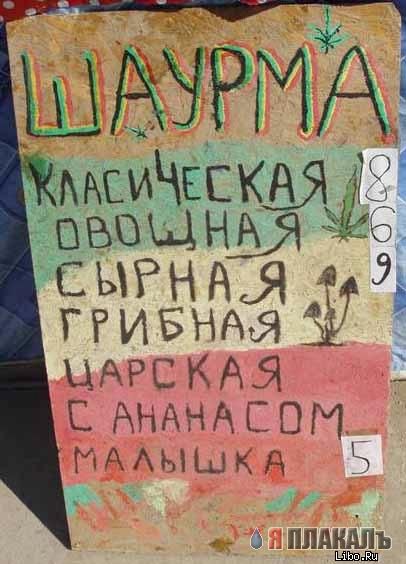 ШАУРМА
КЛАСИЧЕСКАЯ 8
ОВОЩНАЯ 6
СЫРНАЯ 9
ГРИБНАЯ
ЦАРСКАЯ
С АНАНАСОМ
МАЛЫШКА 5
Я ПЛАКАЛЪ
Libo.Ru